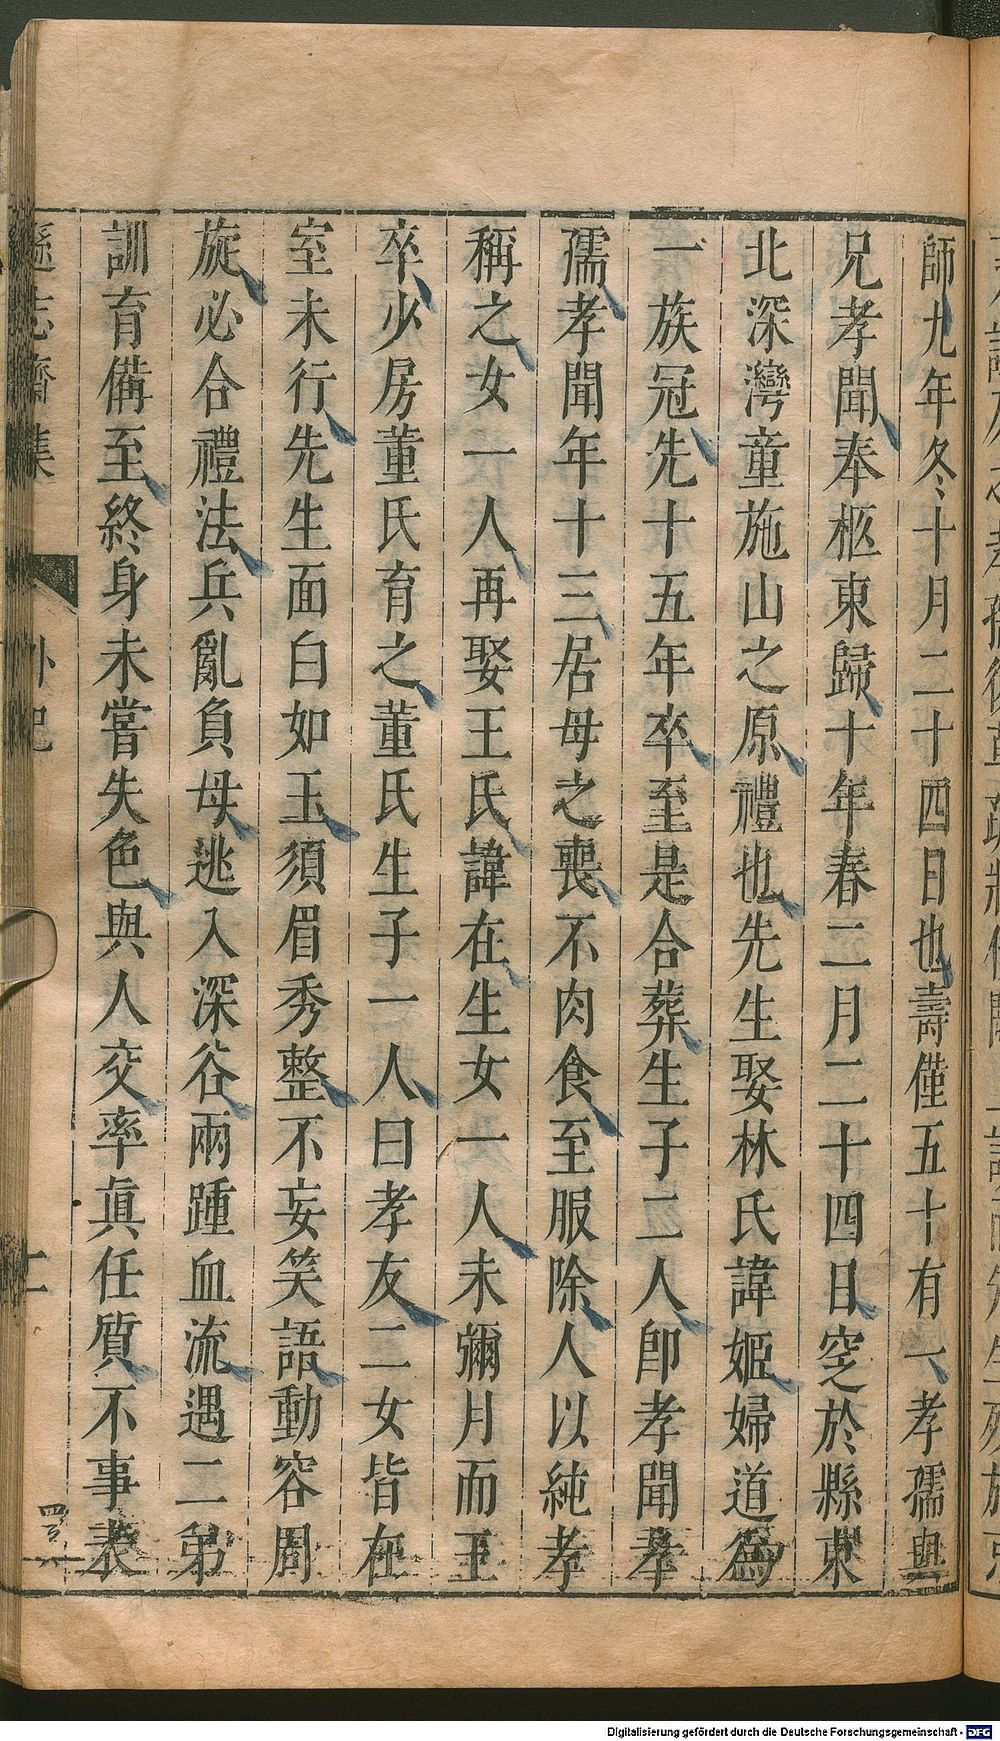 師九年冬十月二十四日也壽僅五十有一孝孺與
兄孝聞奉柩東歸十年春二月二十四日窆於縣東
北深灣童施山之原禮也先生娶林氏諱姬婦道為
一族冠先十五年卒至是合葬生子二人卽孝聞孝
孺孝聞年十三居母之喪不肉食至服除人以純孝
稱之女一人再娶王氏諱在生女一人未彌月而王
卒少房董氏育之董氏生子一人曰孝友二女皆在
室未行先生面白如玉須眉秀整不妄笑語動容周
旋必合禮法兵亂負母逃入深谷兩踵血流遇二弟
訓育備至終身未嘗失色與人交率眞任質不事表
遜志齋集 外紀 二
Digitalisierung gefördert durch die Deutsche Forschungsgemeinschaft - DFG